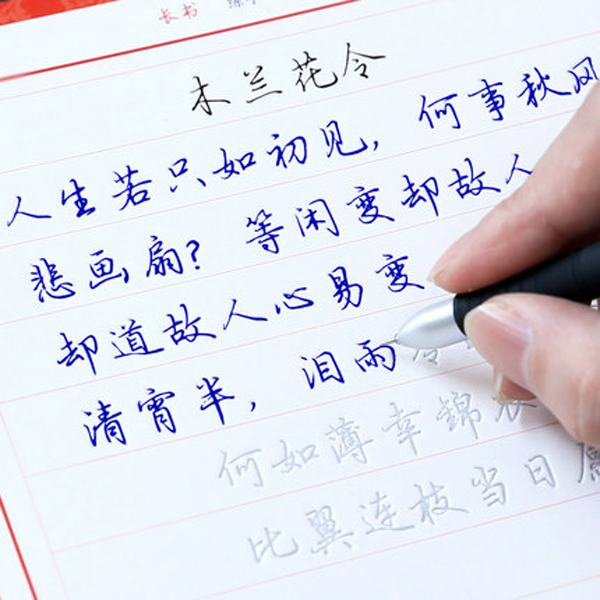 长书
木兰花令
人生若只如初见，何事秋风
悲画扇？等闲变却故人
却道故人心易变
清宵半，泪雨
何如薄幸錦衣
比翼连枝当日愿